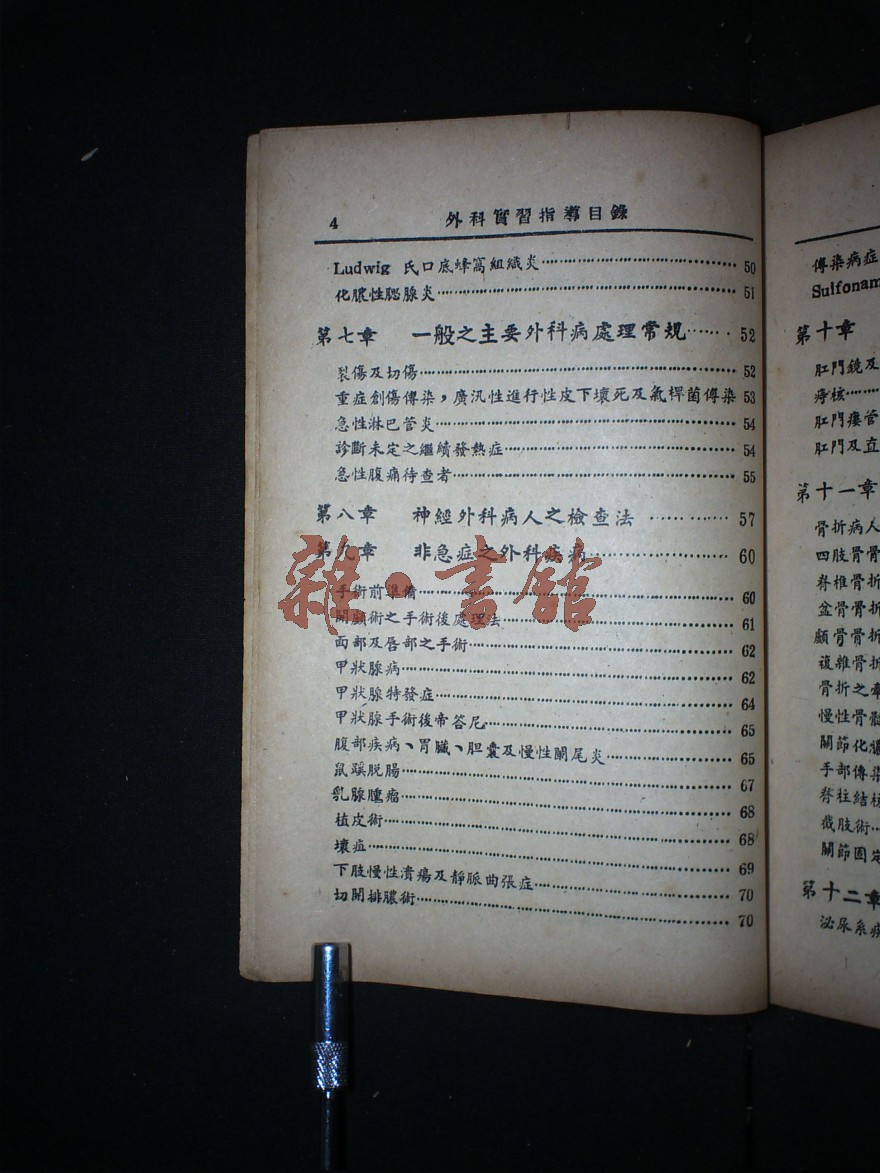 4 外科實習指導目錄
Ludwig 氏口底蜂窩組織炎 50
化膿性腮腺炎 51
第七章 一般之主要外科病處理常規 52
裂傷及切傷 52
重症創傷傳染，廣汎性進行性皮下壞死及氣桿菌傳染 53
急性淋巴管炎 54
診斷未定之繼續發熱症 54
急性腹痛待查者 55
第八章 神經外科病人之檢查法 57
第九章 非急症之外科疾病 60
手術前準備 60
開顱術之手術後處理法 61
面部及唇部之手術 62
甲狀腺病 62
甲狀腺特發症 64
甲狀腺手術後帝答尼 65
腹部疾病、胃臟、胆囊及慢性闌尾炎 65
鼠蹊脱腸 67
乳腺腫瘤 68
植皮術 68
壞疽 69
下肢慢性潰瘍及靜脈曲張症 70
切開排膿術 70
雜·書館
傳染病症
Sulfonam
第十章
肛門鏡及
痔核
肛門瘻管
肛門及直
第十一章
骨折病人
四肢骨骨
脊椎骨折
盆骨骨折
顱骨骨折
複雜骨折
骨折之牽
慢性骨髓
關節化膿
手部傳染
脊柱結核
截肢術
關節固定
第十二章
泌尿系疾